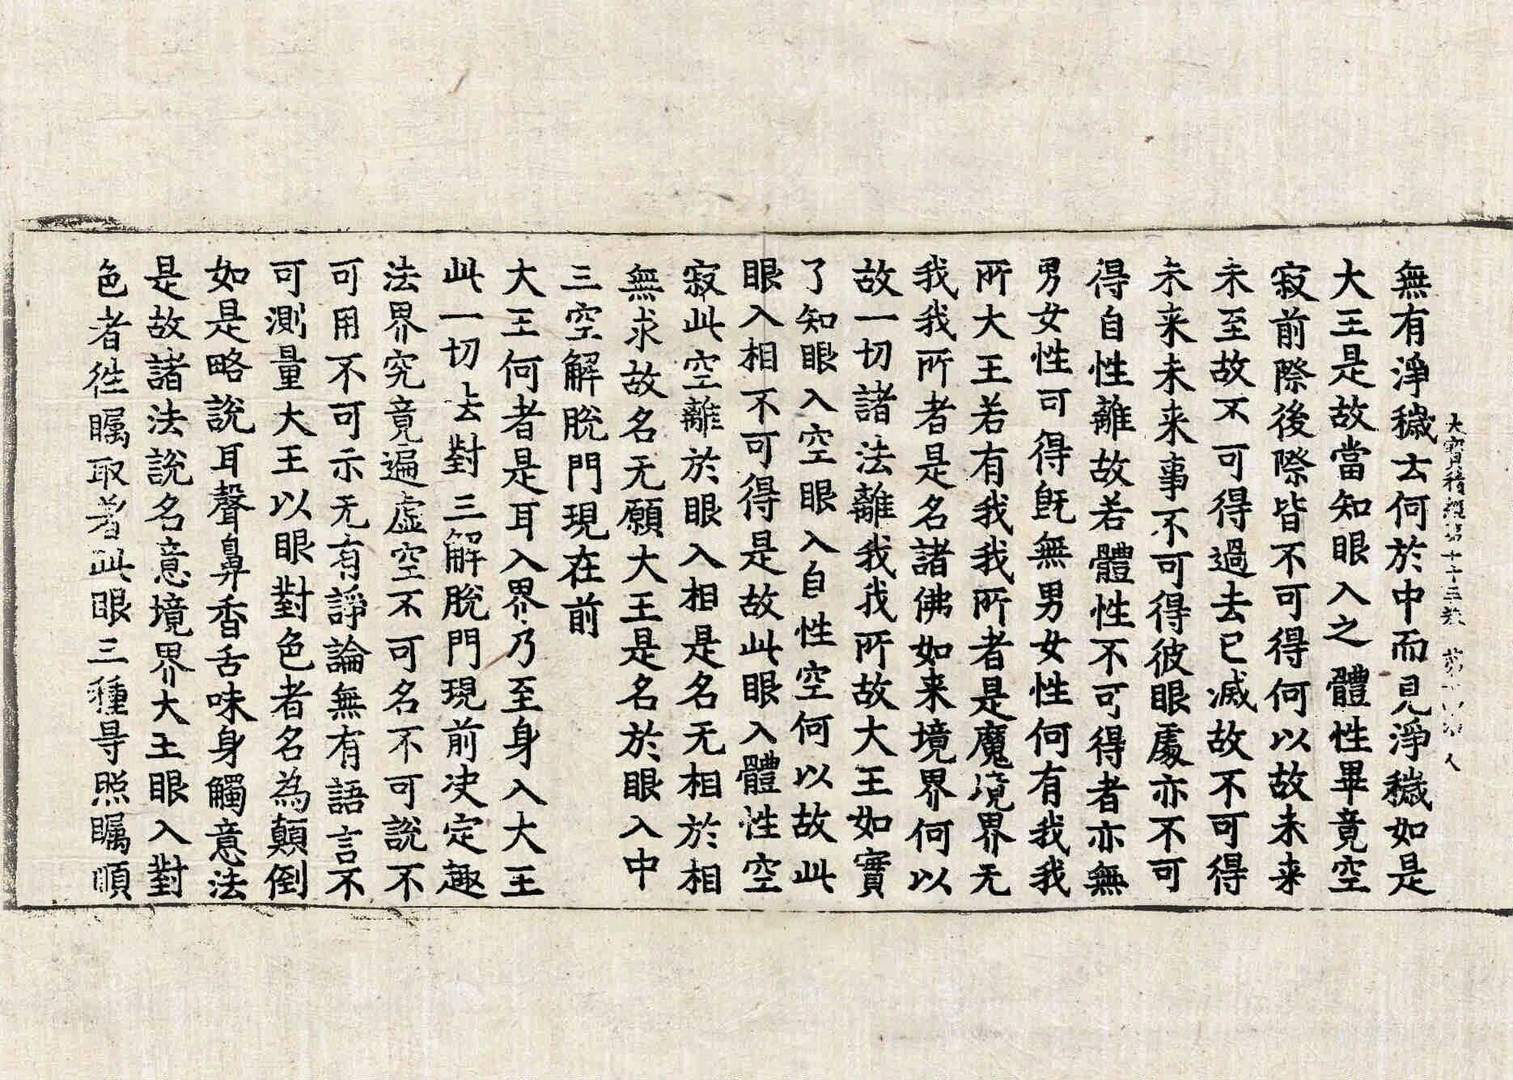 大寶積經第七十三卷 第 人
無有淨穢云何於中而見淨穢如是
大王是故當知眼入之體性畢竟空
寂前際後際皆不可得何以故未来
未至故不可得過去已滅故不可得
未来未来事不可得彼眼處亦不可
得自性離故若體性不可得者亦無
男女性可得旣無男女性何有我我
所大王若有我我所者是魔境界无
我我所者是名諸佛如来境界何以
故一切諸法離我我所故大王如實
了知眼入空眼入自性空何以故此
眼入相不可得是故此眼入體性空
寂此空離於眼入相是名无相於相
無求故名无願大王是名於眼入中
三空解脫門現在前
大王何者是耳入界乃至身入大王
此一切法對三解脫門現前決定趣
法界究竟遍虛空不可名不可說不
可用不可示无有諍論無有語言不
可測量大王以眼對色者名為顛倒
如是略說耳聲鼻香舌味身觸意法
是故諸法說名意境界大王眼入對
色者徃矚取著此眼三種㝵照矚順